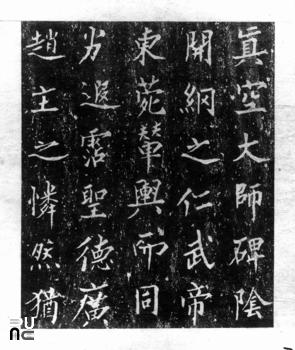 眞空大師碑陰
開網之仁武帝
東菀輦輿同
遐霑聖德廣
趙主之憐然猶